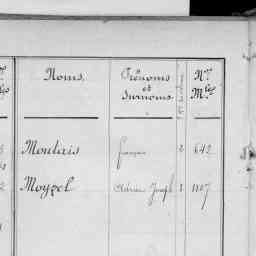 Noms.
Prénoms
et
Surnoms.
Nos
Mles
Moulais
françois
2
642
Moyzel
Adrien Joseph
1
1107